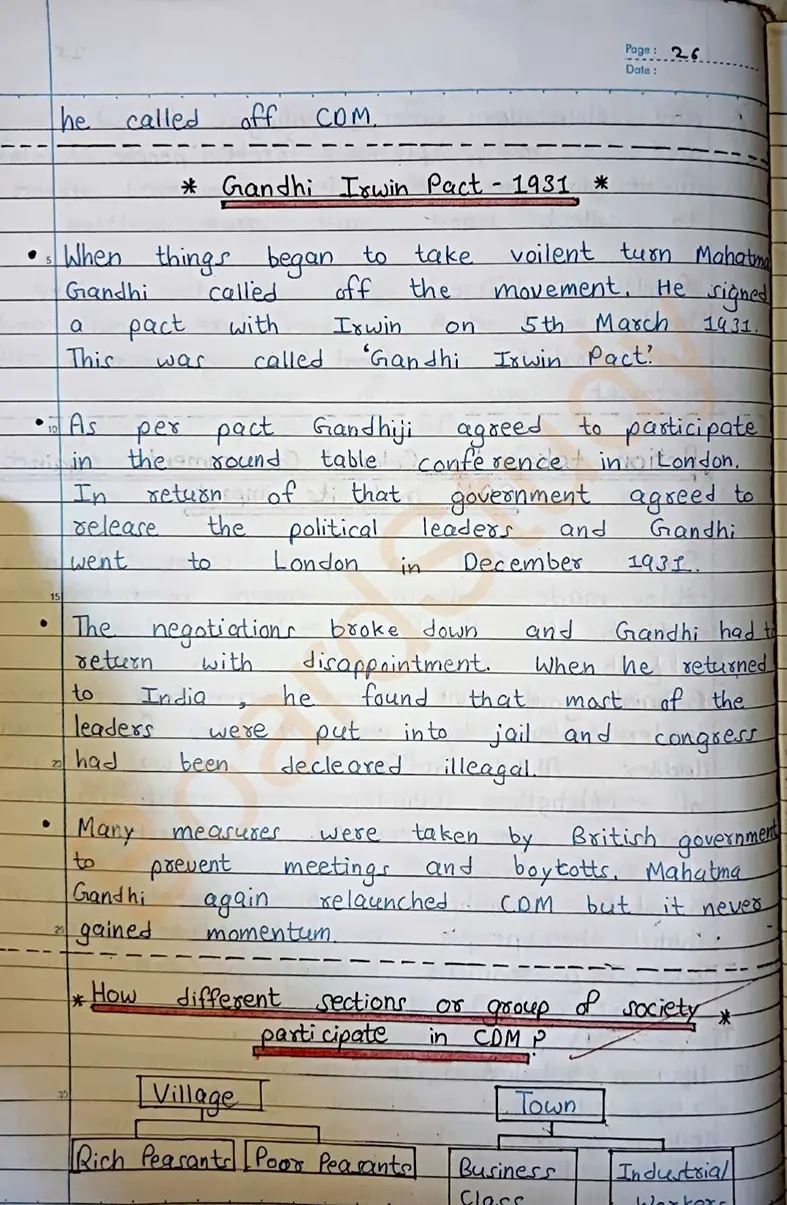 Page : 26
Date :
he called off CDM.
* Gandhi Irwin Pact - 1931 *
• 5 When things began to take voilent turn Mahatma
Gandhi called off the movement. He signed
a pact with Irwin on 5th March 1931.
This was called 'Gandhi Irwin Pact'.
• 10 As per pact Gandhiji agreed to participate
in the round table conference in London.
In return of that government agreed to
release the political leaders and Gandhi
went to London in December 1931.
15
• The negotiations broke down and Gandhi had to
return with disappointment. When he returned
to India , he found that most of the
leaders were put into jail and congress
20 had been decleared illeagal.
• Many measures were taken by British government
to prevent meetings and boytotts. Mahatma
Gandhi again relaunched CDM but it never
25 gained momentum.
* How different sections or group of society *
participate in CDM ?
30 Village Town
Rich Peasants Poor Peasants Business Industrial
Class Workers
BoardStudy